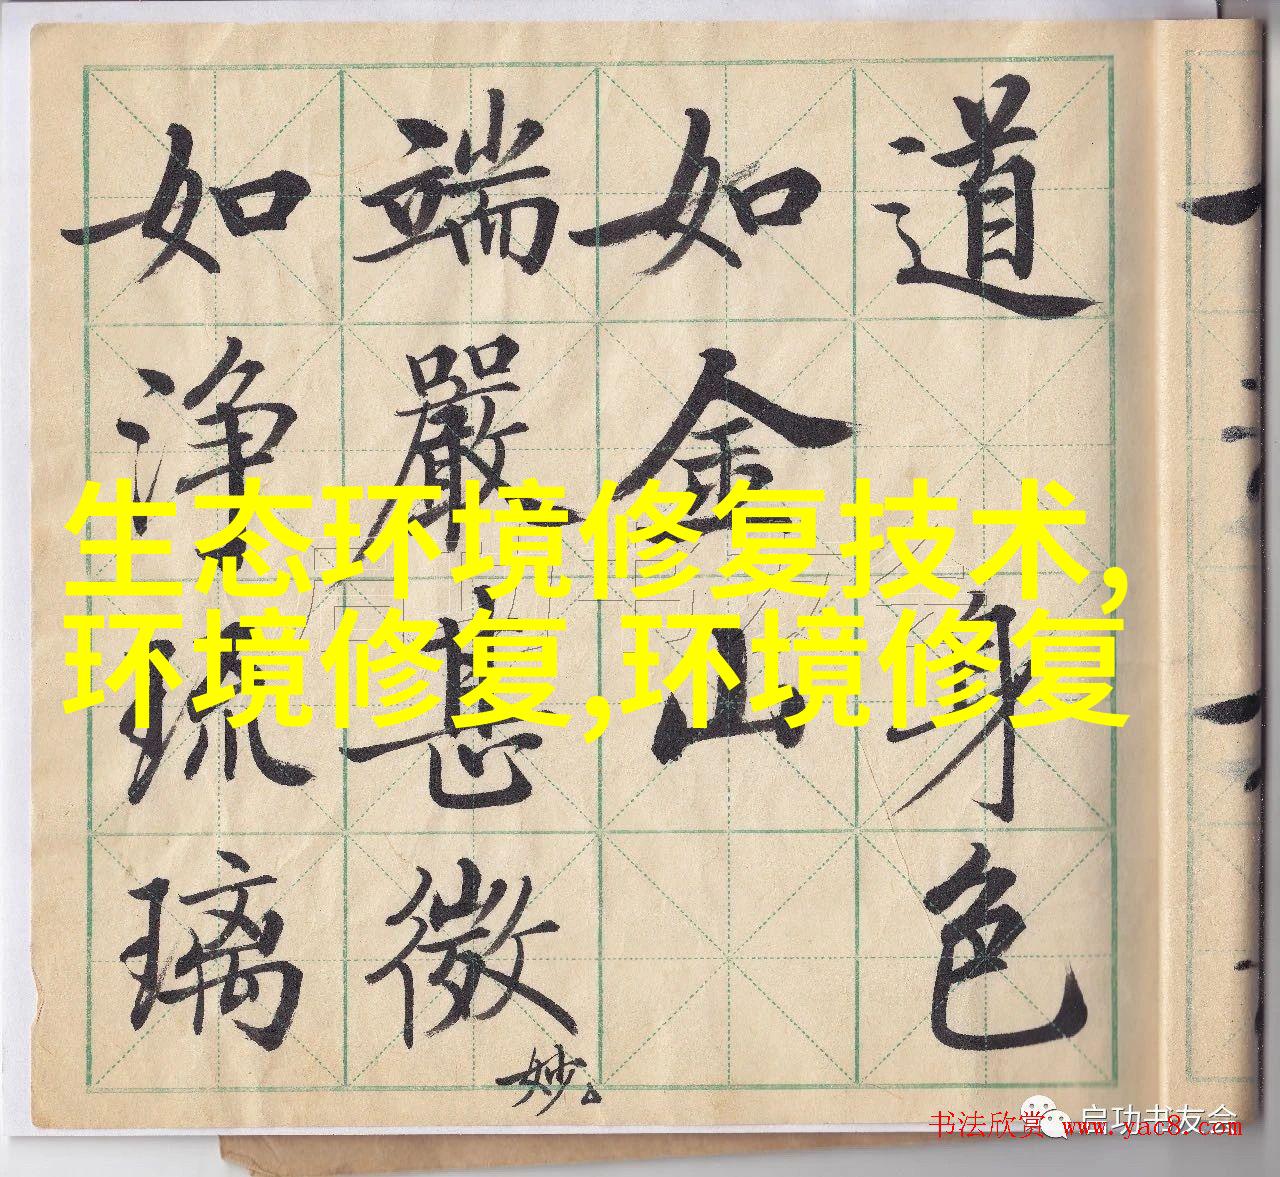 道身色
如金山
端嚴甚微妙
如浄琉璃
生态环境修复技术,
环境修复,环境修复
启功书友会
书法欣赏 www.yac8.com